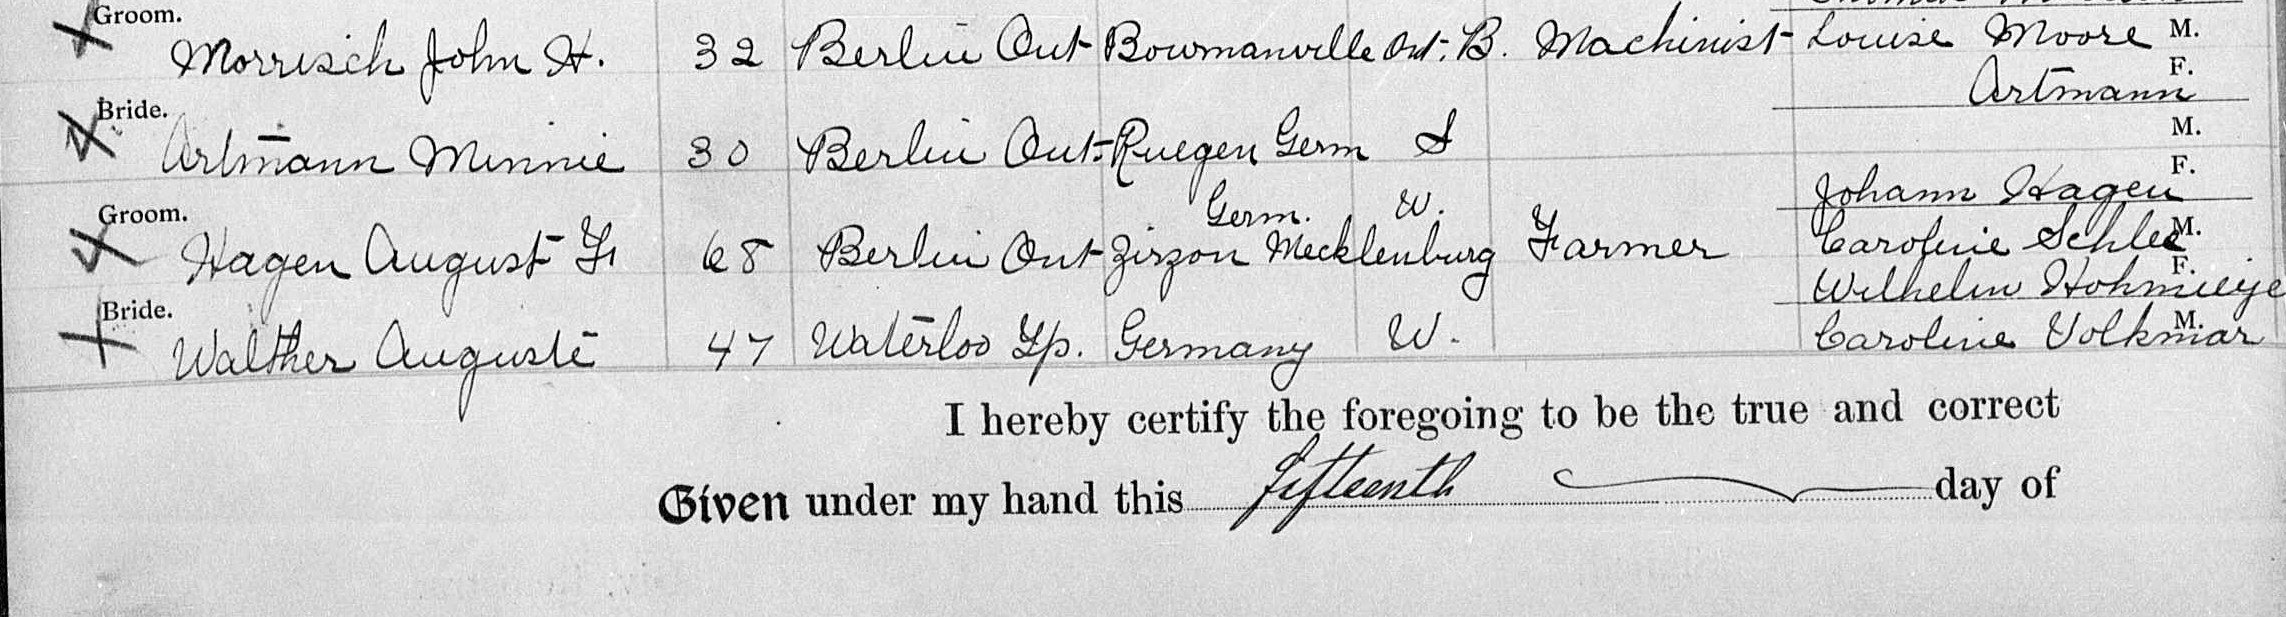 Groom. Morrisch John H. 32 Berlin Ont Bowmanville Ont. B. Machinist Louise Moore M.
F. Artmann
Bride. Artmann Minnie 30 Berlin Ont. Ruegen Germ S M.
F. Johann Hagen
Groom. Hagen August F. 68 Berlin Ont Zirzon Mecklenburg Germ. W. Farmer Caroline Schlee M.
F. Wilhelm Hohmeije
Bride. Walther Auguste 47 Waterloo Tp. Germany W. Caroline Volkmar M.
I hereby certify the foregoing to be the true and correct
Given under my hand this fifteenth day of